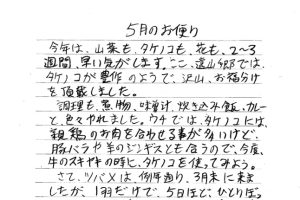 5月のお便り
今年は、山菜も、タケノコも、花も、2～3
週間、早い気がします。ここ、遠山郷では、
タケノコが豊作のようで、沢山、お福分け
を頂戴しました。
調理も、煮物、味噌汁、炊き込み飯、カレー
と、色々やれました。ウチでは、タケノコには、
親鶏のお肉を合わせる事が多いけど、
豚バラや羊のジンギスとも合うので、今度、
牛のスキヤキの時に、タケノコを使ってみよう。
さて、ツバメは、例年通り、3月末に来ま
したが、1羽だけで、5日ほど、ひとりぼっ